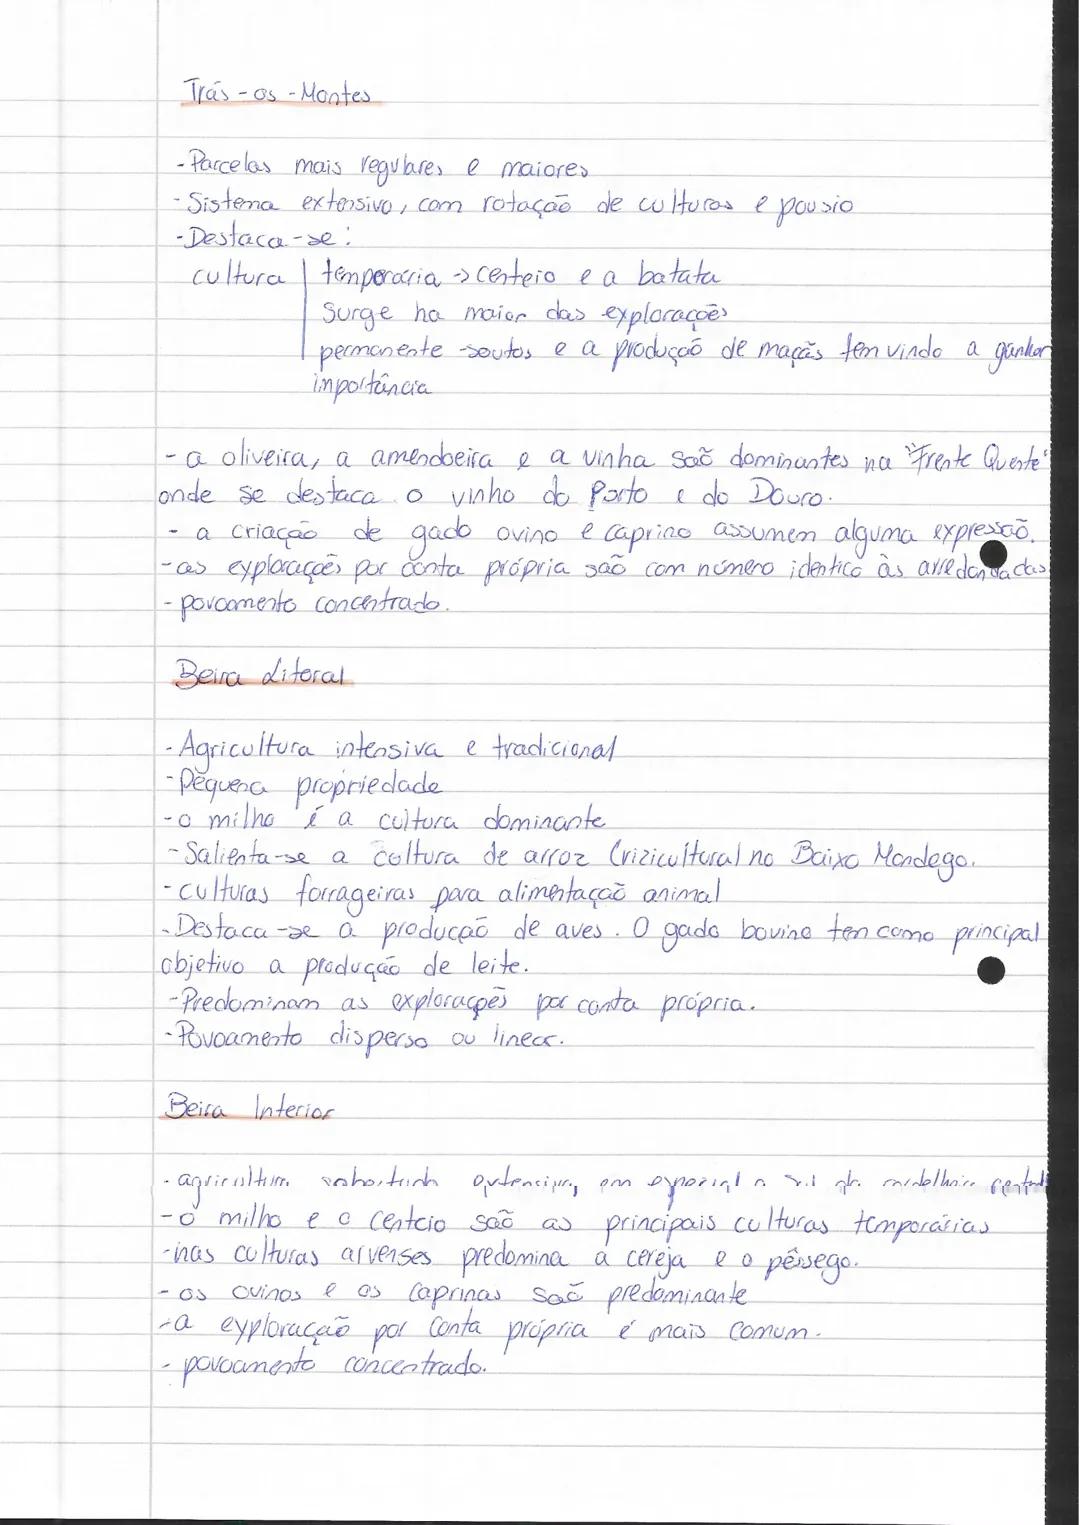 Trás-os-Montes
- Parcelas mais regulares e maiores
- Sistema extensivo, com rotação de culturas e pousio
- Destaca-se:
cultura | temporária -> centeio e a batata
Surge na maior das explorações
permanente - soutos e a produção de maçãs tem vindo a ganhar
importância
- a oliveira, a amendoeira e a vinha são dominantes na "Frente Quente"
onde se destaca o vinho do Porto e do Douro.
- a criação de gado ovino e caprino assumem alguma expressão.
- as explorações por conta própria são com número identico às
- povoamento concentrado.
Beira Litoral
- Agricultura intensiva e tradicional
- Pequena propriedade
- o milho é a cultura dominante
- Salienta-se a cultura de arroz (rizicultural no Baixo Mondego.
- culturas forrageiras para alimentação animal
- Destaca-se a produção de aves. O gado bovino tem como principal
objetivo a produção de leite.
- Predominam as explorações por conta própria.
- Povoamento disperso ou linear.
Beira Interior
- agricultura em especial a
- o milho e o centeio são as principais culturas temporárias
- nas culturas arvenses predomina a cereja e o pêssego.
- os ovinos e os caprinos são predominante
- a exploração por conta própria é mais comum.
- povoamento concentrado.